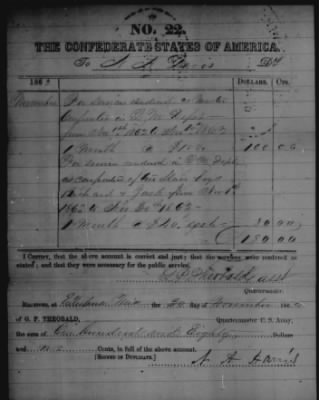 No. 22.
THE CONFEDERATE STATES OF AMERICA,
To Dr.
186 DOLLARS. CTS.
November For Services rendered as Master
Carpenter in Q. M. Dept
from Nov 1st 1862 to 1862
1 Month @ 100 00
For Services rendered in Q M Dept
as carpenter of his Slave boys
Richard & Jack from Nov 1st
1862 to Nov 30th 1862
1 Month @ each 80.00
180.00
I CERTIFY, that the above account is correct and just; that the services were rendered as
stated; and they were necessary for the public service.
Theobald
Quartermaster.
RECEIVED, at the 30 day of November 186
of G. P. THEOBALD, Quartermaster C. S. Army,
the sum of One hundred and Eighty Dollars
and Cents, in full of the above account.
[SIGNED IN DUPLICATE.] Harris